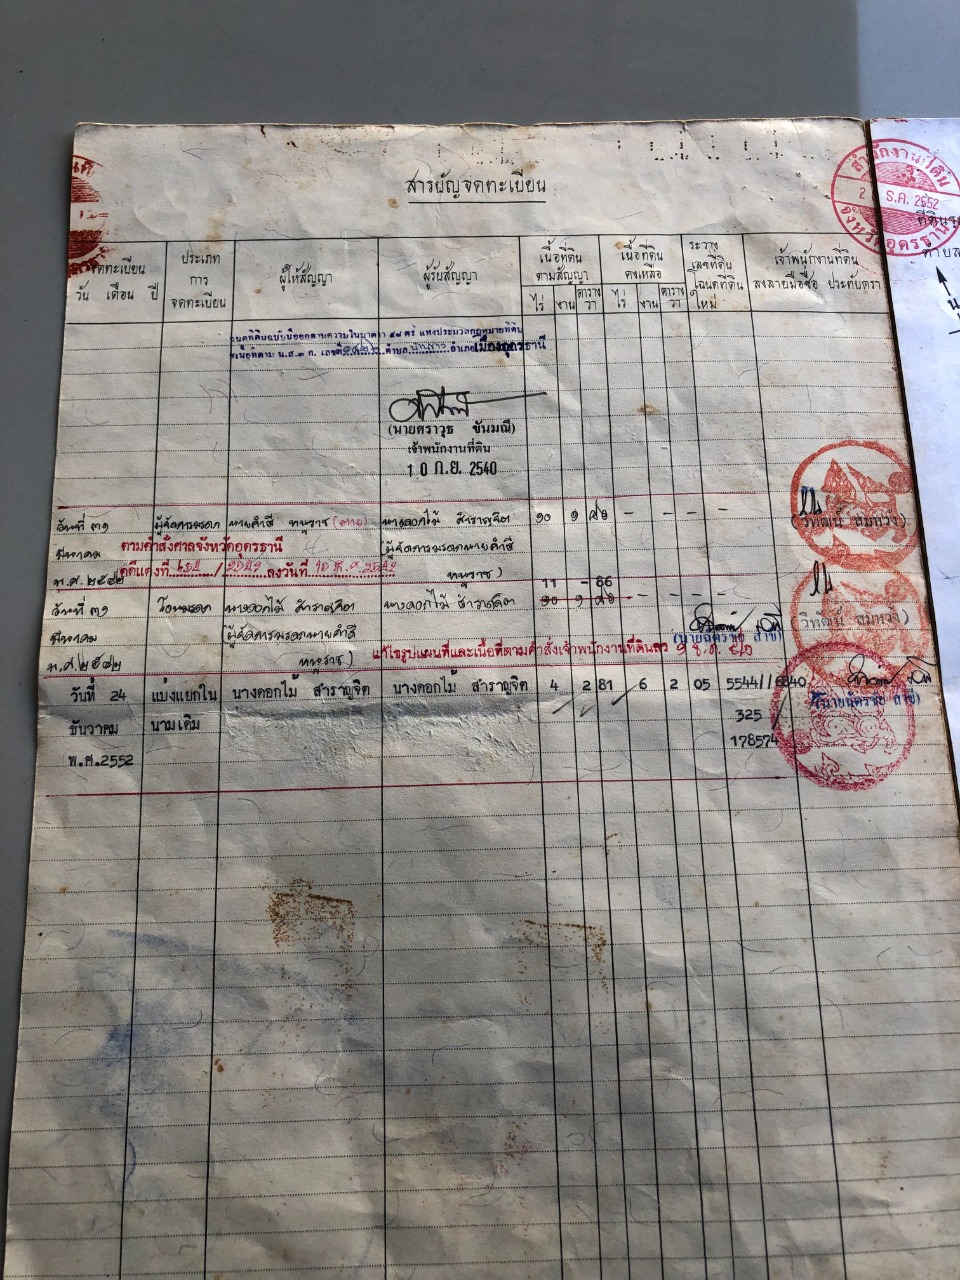 สารบัญจดทะเบียน
สำนักงานที่ดิน
ธ.ค. 2552
จังหวัดอุดรธานี
จดทะเบียน
วัน เดือน ปี
ประเภท
การ
จดทะเบียน
ผู้ให้สัญญา
ผู้รับสัญญา
เนื้อที่ดิน
ตามสัญญา
ไร่ งาน ตาราง
วา
เนื้อที่ดิน
คงเหลือ
ไร่ งาน ตาราง
วา
ระวาง
เลขที่ดิน
โฉนดที่ดิน
ใหม่
เจ้าพนักงานที่ดิน
ลงลายมือชื่อ ประทับตรา
โฉนดที่ดินฉบับนี้ออกตามความในมาตรา ๕๘ ตรี แห่งประมวลกฎหมายที่ดิน
น.ส.๓ ก. เลขที่ ตำบล อำเภอเมืองอุดรธานี
(นายศราวุธ ขันมณี)
เจ้าพนักงานที่ดิน
10 ก.ย. 2540
วันที่ ๓๑ ผู้จัดการมรดก นายคำสี ทนูราช (ตาย) นางดอกไม้ สำราญจิต ๑๐ ๑ – – –
มีนาคม ตามคำสั่งศาลจังหวัดอุดรธานี (ผู้จัดการมรดกนายคำสี
พ.ศ.๒๕๔๒ คดีแดงที่ / 2542 ลงวันที่ ทนูราช)
11 – 86
วันที่ ๓๑ โอนมรดก นางดอกไม้ สำราญจิต นางดอกไม้ สำราญจิต ๑๐ ๑ – – –
มีนาคม (ผู้จัดการมรดกนายคำสี
พ.ศ.๒๕๔๒ ทนูราช) แก้ไขรูปแผนที่และเนื้อที่ตามคำสั่งเจ้าพนักงานที่ดิน
(นายฉัตรชัย
วันที่ 24 แบ่งแยกใน นางดอกไม้ สำราญจิต นางดอกไม้ สำราญจิต 4 2 81 6 2 05 5544//6640
ธันวาคม นามเดิม 325
พ.ศ.2552 178574
(นายฉัตรชัย